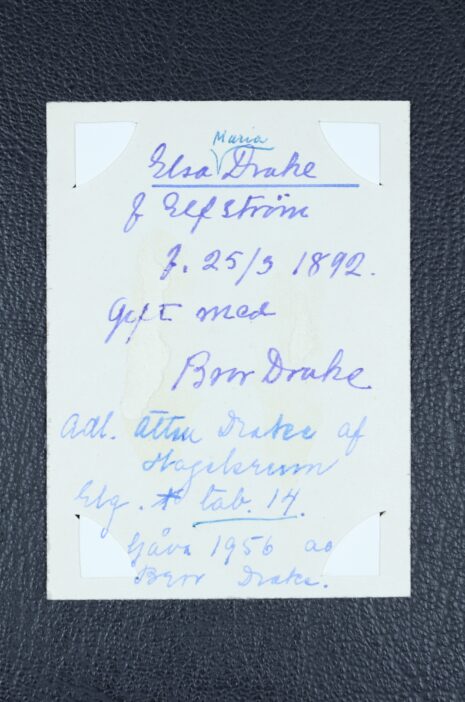 Maria
Elsa Drake
f Elfström
f. 25/3 1892.
Gift med
Bror Drake
Adl. ätten Drake af
Hagelsrum
Elg. * tab. 14.
Gåva 1956 av
Bror Drake.